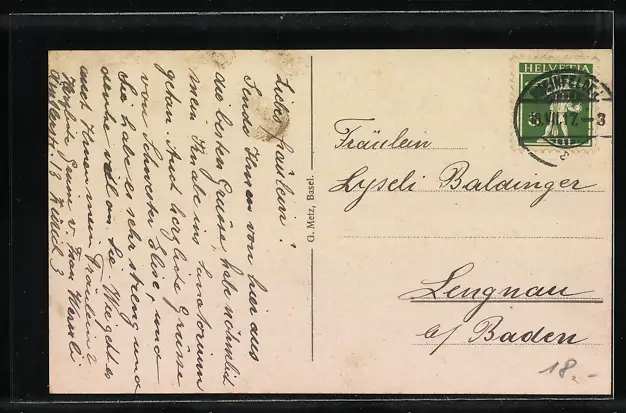 Liebes Fräulein!
Sende Ihnen von hier aus
die besten Grüsse, habe nähmlich
mein Knabe im Sanatorium
gehen Auch herzliche Grüsse
von Schwester Elise, und
Sie habe es sehr streng und
denke viel an Sie. Wie geht es
auch Ihnen mein Fräulein?
Herzliche Grüsse v. Frau
G. Metz, Basel.
HELVETIA
VII.17.-3
Fräulein
Lyseli Baldinger
Lengnau
b/ Baden
18.-